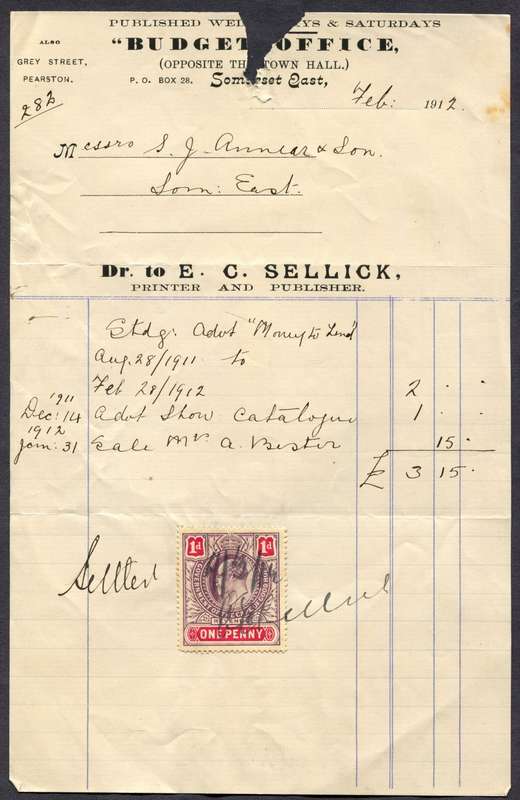 PUBLISHED WEDNESDAYS & SATURDAYS
ALSO
GREY STREET,
PEARSTON.
"BUDGET" OFFICE,
(OPPOSITE THE TOWN HALL.)
P. O. BOX 28.
Somerset East,
282
Feb: 1912.
Messrs S. J. Annear & Son.
Som: East.
Dr. to E. C. SELLICK,
PRINTER AND PUBLISHER.
Stdg: Advt "Money to Lend"
Aug. 28/1911 to
Feb 28/1912 2 . .
1911
Dec: 14 Advt Show Catalogue 1 . .
1912
Jan: 31 Sale Mr A. Bester 15 .
£ 3 15 .
Settled
1d 1d
ONE PENNY